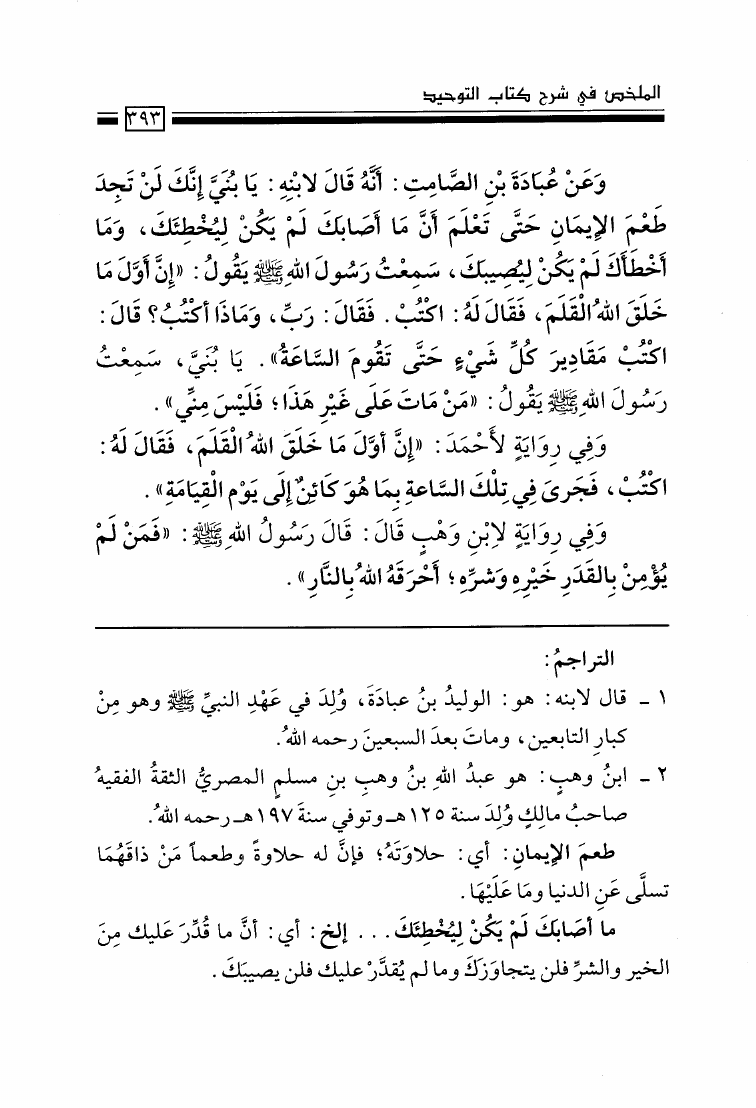 الملخص في شرح كتاب التوحيد
٣٩٣
وَعَنْ عُبَادَةَ بْنِ الصَّامِتِ: أَنَّهُ قَالَ لابْنِهِ: يَا بُنَيَّ إِنَّكَ لَنْ تَجِدَ
طَعْمَ الإِيمَانِ حَتَّى تَعْلَمَ أَنَّ مَا أَصَابَكَ لَمْ يَكُنْ لِيُخْطِئَكَ، وَمَا
أَخْطَأَكَ لَمْ يَكُنْ لِيُصِيبَكَ، سَمِعْتُ رَسُولَ اللهِ ﷺ يَقُولُ: «إِنَّ أَوَّلَ مَا
خَلَقَ اللهُ الْقَلَمَ، فَقَالَ لَهُ: اكْتُبْ. فَقَالَ: رَبِّ، وَمَاذَا أَكْتُبُ؟ قَالَ:
اكْتُبْ مَقَادِيرَ كُلِّ شَيْءٍ حَتَّى تَقُومَ السَّاعَةُ». يَا بُنَيَّ، سَمِعْتُ
رَسُولَ اللهِ ﷺ يَقُولُ: «مَنْ مَاتَ عَلَى غَيْرِ هَذَا؛ فَلَيْسَ مِنِّي».
وَفِي رِوَايَةٍ لأَحْمَدَ: «إِنَّ أَوَّلَ مَا خَلَقَ اللهُ الْقَلَمَ، فَقَالَ لَهُ:
اكْتُبْ، فَجَرَى فِي تِلْكَ السَّاعةِ بِمَا هُوَ كَائِنٌ إِلَى يَوْمِ الْقِيَامَةِ».
وَفِي رِوَايَةٍ لِابْنِ وَهْبٍ قَالَ: قَالَ رَسُولُ اللهِ ﷺ: «فَمَنْ لَمْ
يُؤْمِنْ بِالقَدَرِ خَيْرِهِ وَشَرِّهِ؛ أَحْرَقَهُ اللهُ بِالنَّارِ».
التراجمُ:
١ - قال لابنه: هو: الوليدُ بنُ عبادَةَ، وُلِدَ في عَهْدِ النبيِّ ﷺ وهو مِنْ
كبارِ التابعين، وماتَ بعدَ السبعينَ رحمه اللهُ.
٢ - ابنُ وهبٍ: هو عبدُ اللهِ بنُ وهبِ بنِ مسلمٍ المصريُّ الثقةُ الفقيهُ
صاحبُ مالِكٍ وُلِدَ سنة ١٢٥هـ وتوفي سنةَ ١٩٧هـ رحمه اللهُ.
طعمَ الإيمانِ: أي: حلاوَتَهُ؛ فإنَّ له حلاوةً وطعماً مَنْ ذاقَهُمَا
تسلَّى عَنِ الدنيا ومَا عَلَيْهَا.
ما أصَابكَ لَمْ يَكُنْ لِيُخْطِئَكَ... إلخ: أي: أنَّ ما قُدِّرَ عَليك مِنَ
الخير والشرِّ فلن يتجاوَزكَ وما لم يُقدَّرْ عليك فلن يصيبَكَ.